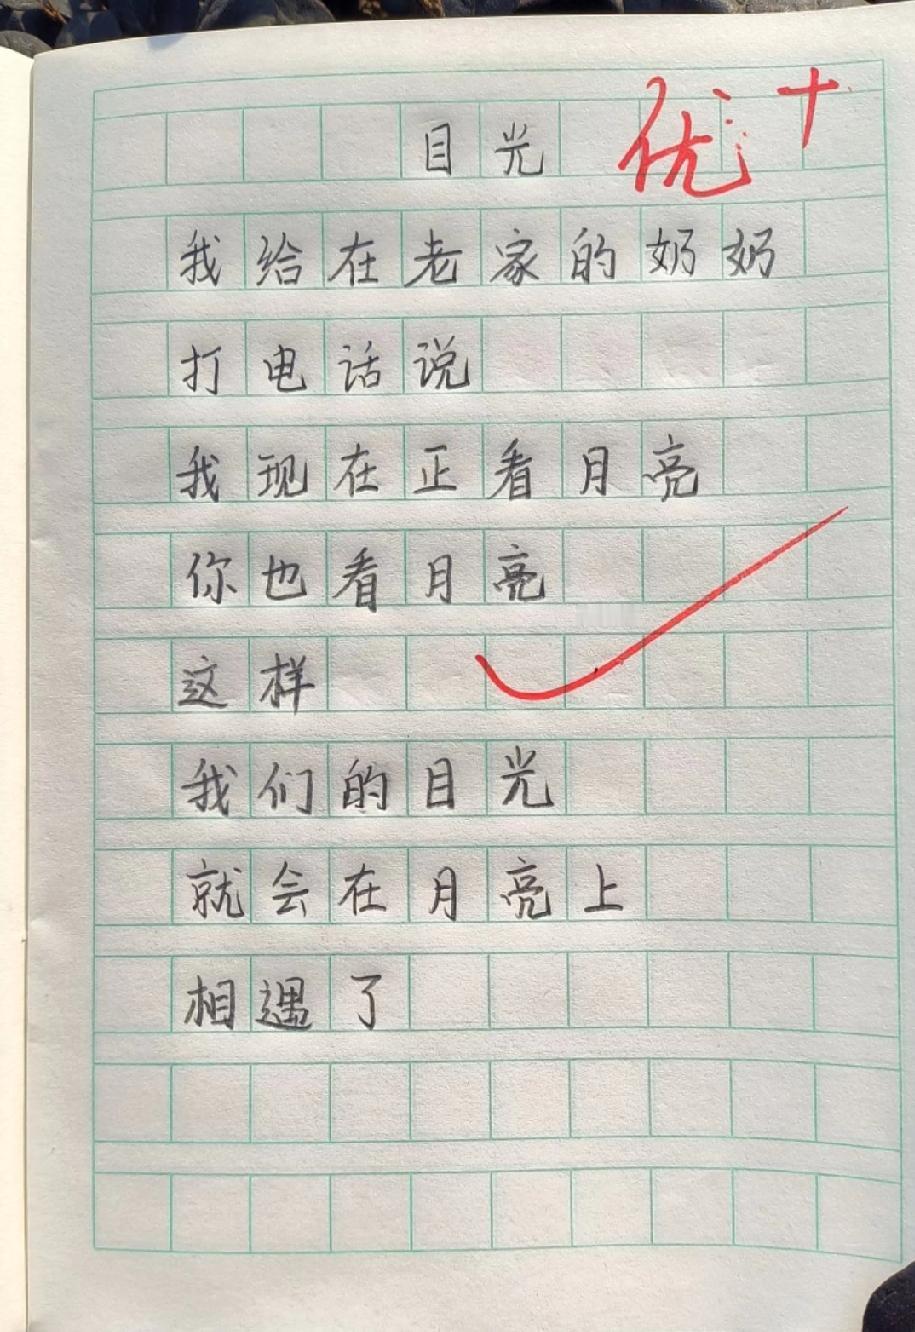 目光 优+
我给在老家的奶奶
打电话说
我现在正看月亮
你也看月亮
这样
我们的目光
就会在月亮上
相遇了